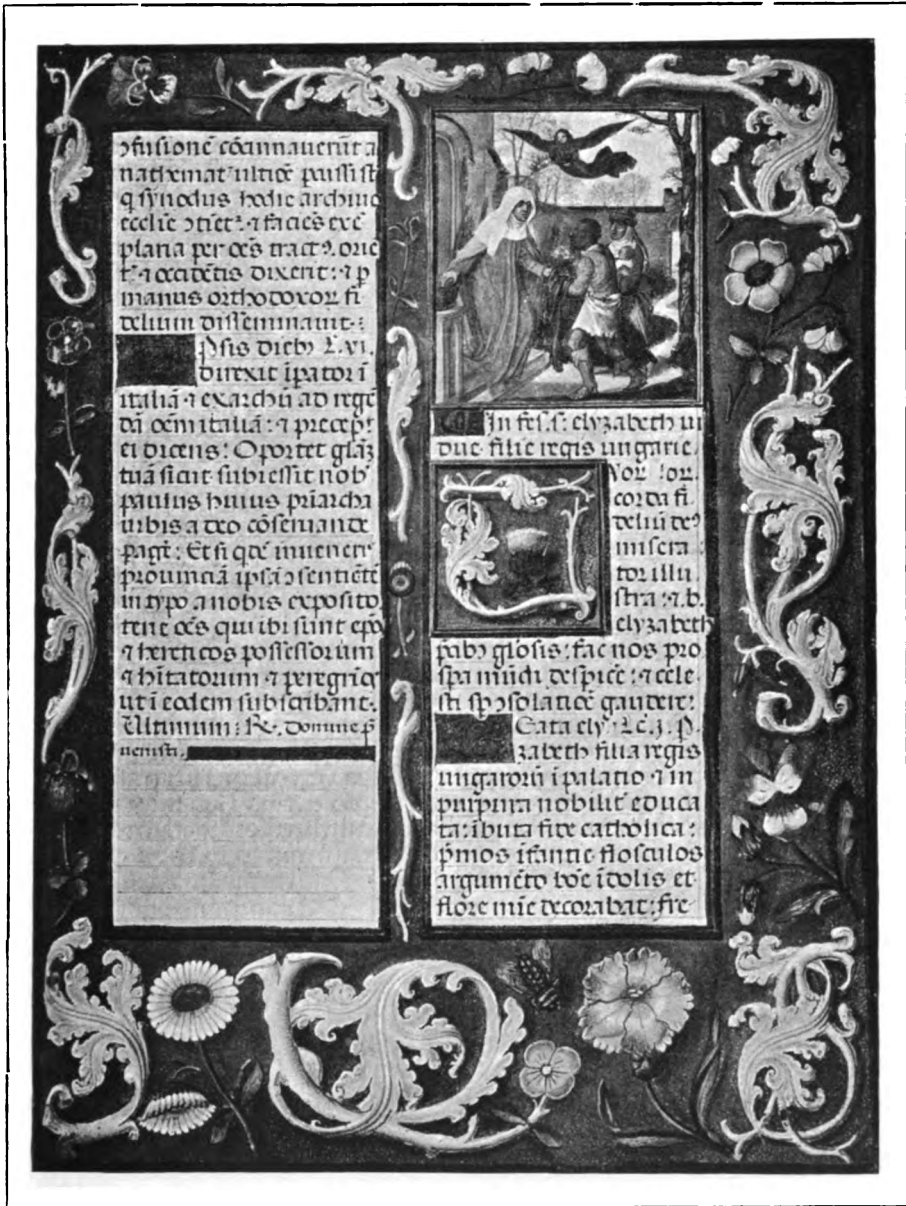 ɔfusionē cōannauerūt a
nathemat᷒ ulticē paussist
q synodus hodie archiuo
ecclie ɔtiet᷒. ⁊ faciēs exē
plaria per oēs tract᷒. oriē
t᷒ ⁊ occidētis dixerit: ⁊ p̄
manus orthodoxor fi
delium disseminauit:
Psis dieb᷒ L. vi.
direxit īpator ī
italiā ⁊ exarchū ad regē
dā oēm italiā: ⁊ precep᷒
ei dicens: Oportet glāʒ
tuā sicut subiessit nob᷒
paulus huius p̄riarcha
urbis a deo cōseruande
pagē: Et si qdē inuener᷒
prouinciā ipsā ɔsentiētē
in typo a nobis exposito
tene oēs qui ibi sunt epō
⁊ hereticos possessorum
⁊ hitatorum ⁊ peregrīos
ut ī eodem subscribant.
Ultimum: R. Domine p̄
uenisti.
In fes. s. elyzabeth ui
due filie regis ungarie.
or. or.
corda fi
deliū de᷒
misera
tor illu
stra: ⁊. b.
elyzabeth
p̄cib᷒ glōsis: fac nos pro
spa mūdi despicē: ⁊ cele
sti sp̄ ɔsolatiōe gaudere:
Eata ely L. j. P.
zabeth filia regis
ungarorū ī palatio ⁊ in
purpura nobilit᷒ educa
ta: ībuta fide catholica:
p̄mos īfantie flosculos
argumēto boē īdolis et
flore mīe decorabat: fre